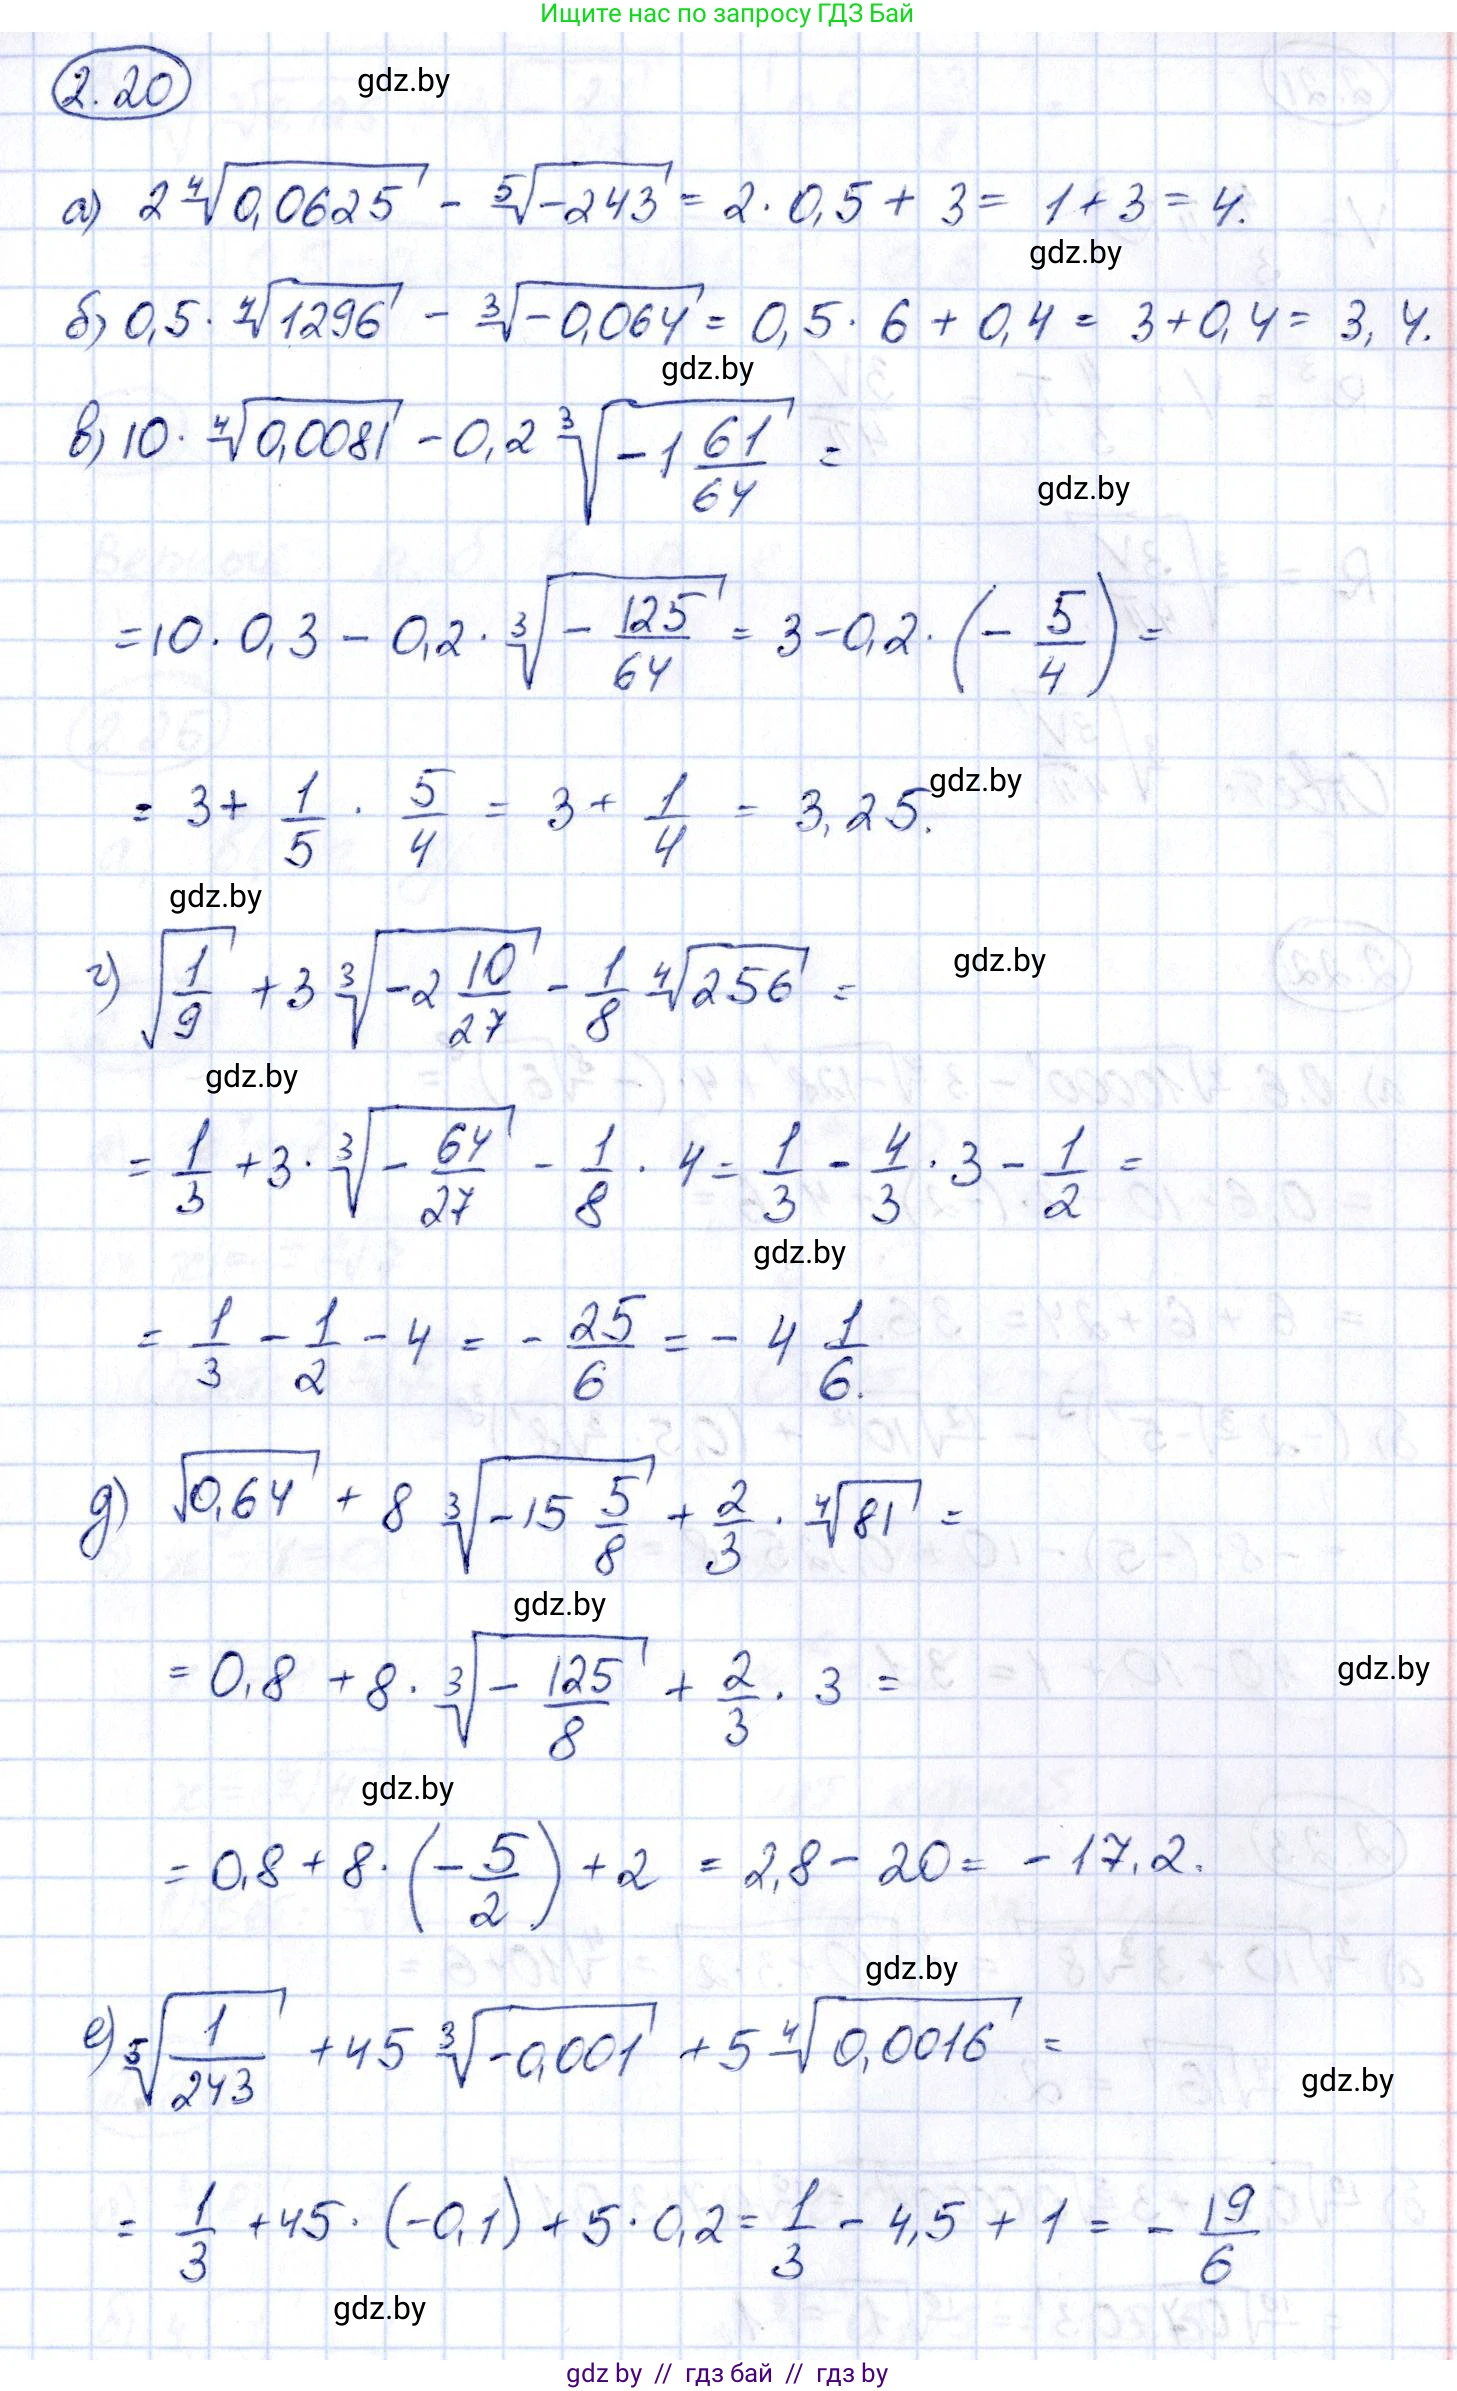 Ищите нас по запросу ГДЗ Бай
2.20
gdz.by
а) 2⁴√0,0625 - ⁵√-243 = 2·0,5 + 3 = 1+3 = 4.
gdz.by
б) 0,5·⁴√1296 - ³√-0,064 = 0,5·6 + 0,4 = 3+0,4 = 3,4.
gdz.by
в) 10·⁴√0,0081 - 0,2 ³√-1 61/64 =
gdz.by
= 10·0,3 - 0,2·³√-125/64 = 3-0,2·(-5/4) =
= 3+ 1/5 · 5/4 = 3+ 1/4 = 3,25.
gdz.by
gdz.by
г) √1/9 + 3 ³√-2 10/27 - 1/8 ⁴√256 =
gdz.by
gdz.by
= 1/3 + 3·³√-64/27 - 1/8 · 4 = 1/3 - 4/3 · 3 - 1/2 =
gdz.by
= 1/3 - 1/2 - 4 = - 25/6 = - 4 1/6.
д) √0,64 + 8 ³√-15 5/8 + 2/3 · ⁴√81 =
gdz.by
= 0,8 + 8·³√-125/8 + 2/3 · 3 =
gdz.by
gdz.by
= 0,8 + 8·(-5/2) + 2 = 2,8 - 20 = -17,2.
gdz.by
е) ⁵√1/243 + 45 ³√-0,001 + 5 ⁴√0,0016 =
gdz.by
= 1/3 + 45·(-0,1) + 5·0,2 = 1/3 - 4,5 + 1 = - 19/6
gdz.by
gdz by // гдз бай // гдз by